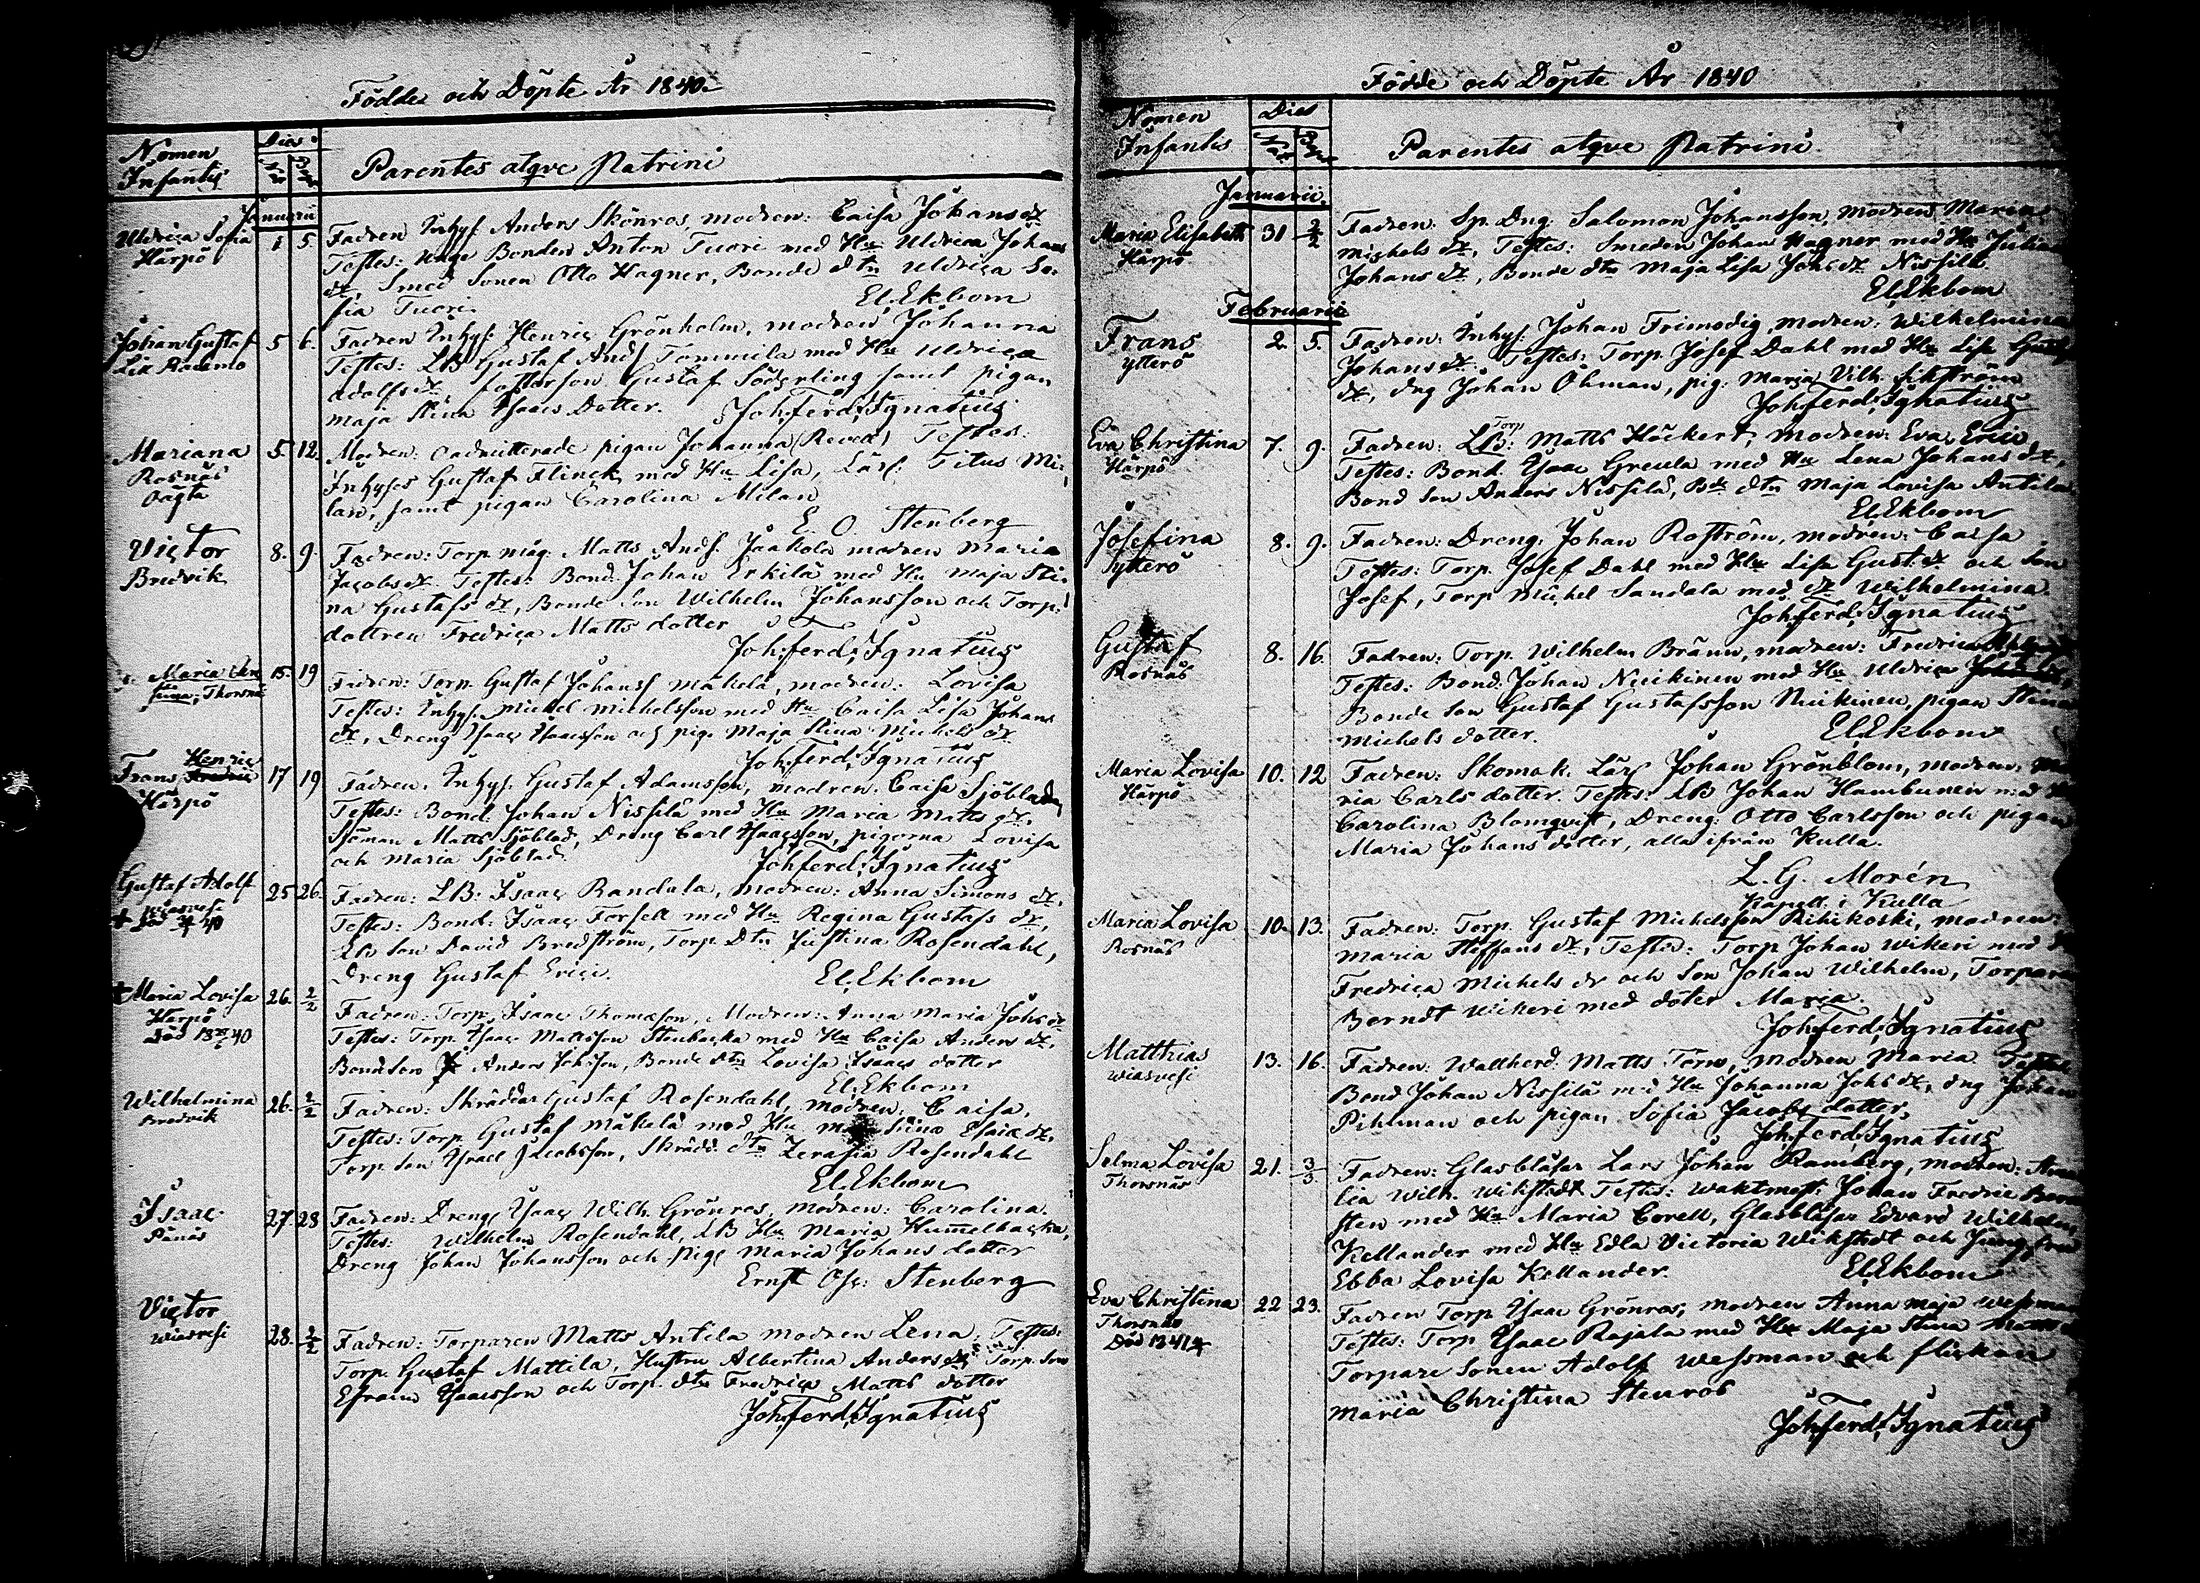 Födde och Döpte År 1840.
Nomen
Infantis
Dies
Parentes atqve Patrini
Januarii
Uldrica Sofia
Härpö
1 5
Fadren Inhys. Anders Skönros, modren: Caisa Johans dr
Testes: Unga Bonden Anton Tuori med Hu Uldrica Johans
dr, Smed Sonen Otto Hagner, Bonde dtn Uldrica So-
fia Tuori.
El. Ekbom
Johan Gustaf
5 6.
Fadren Inhys. Henric Grönholm, modren Johanna
Testes: LB Gustaf Ands Tommila med Hu Uldrica
Adolfs dr fosterson Gustaf Söderling samt pigan
Maja Stina Isaacs Dotter.
Joh. Ferd. Ignatius
Mariana
Rosnäs
5. 12.
Modren: pigan Johanna Testes:
Inhyses Gustaf Flinck med Hu Lisa, Lärl: Titus Mi-
lan, samt pigan Carolina Milan
E. O. Stenberg
Victor
Bredvik
8. 9.
Fadren: Torp. måg. Matts Ands. Jaakola modren Maria
Jacobs dr. Testes: Bond. Johan Erkilä med Hu Maja Sti-
na Gustafs dr, Bonde Son Wilhelm Johansson och Torp.
dottren Fredrica Matts dotter
Joh. Ferd. Ignatius
Maria
Thorsnäs
15. 19
Fadren: Torp. Gustaf Johanss Mäkelä, modren: Lovisa
Testes: Inhys. Michel Michelsson med Hu Caisa Lisa Johans
dr, Dreng Isaac Isaacsson och pig. Maja Stina Michels dr
Joh. Ferd. Ignatius
Henric
Frans Fredric
Härpö
17 19
Fadren. Inhys. Gustaf Adamsson, modren. Caisa Sjöblad
Testes: Bond. Johan Nissilä med Hu Maria Matts dr.
Sjöman Matts Sjöblad, Dreng Carl Isaacsson, pigorna Lovisa
och Maria Sjöblad.
Joh. Ferd. Ignatius
Gustaf Adolf
Wiasvesi
25 26.
Fadren: LB: Isaac Randala, modren: Anna Simons dr,
Testes: Bond: Isaac Forsell med Hu Regina Gustafs dr,
LB son David Bredström, Torp. Dtn Justina Rosendahl,
Dreng Gustaf Erici.
El. Ekbom
† Maria Lovisa
Härpö
26. 2/2
Fadren: Torp. Isaac Thomæson, Modren: Anna Maria Johs dr
Testes: Torp. Isaac Mattsson Stenbacka med Hu Caisa Anders dr,
Bond Son Anders Johsson, Bonde dtn Lovisa Isaacs dotter
El. Ekbom
Wilhelmina
Bredvik
26. 2/2
Fadren: Skräddar Gustaf Rosendahl, modren: Caisa.
Testes: Torp. Gustaf Mäkelä med Hu Stina Esaiæ dr.
Torp. Son Israel Jacobsson, Skrädd. dtn Zerafia Rosendahl
El. Ekbom
Isaac
27. 28
Fadren: Dreng Isaac Wilh. Grönros, modren: Carolina.
Testes: Wilhelm Rosendahl, LB Hu Maria Hummelbacka,
Dreng Johan Johansson och pig. Maria Johans dotter
Ernst Osc: Stenberg
Victor
Wiasvesi
28. 2/2
Fadren: Torparen Matts Antila modren Lena. Testes:
Torp. Gustaf Mattila, Hustru Albertina Anders dr Torp. Son
Efraim Isaacsson och Torp. dtn Fredrica Matts dotter
Joh. Ferd. Ignatius
Födde och Döpte År 1840
Nomen
Infantis
Dies
Parentes atqve Patrini
Januarii
Maria Elisabeth
Härpö
31 2/2
Fadren. Sp. Dng. Salomon Johansson, modren Maria
Michels dr, Testes: Smeden Johan Hagner med Hu Julia
Johans dr, Bonde dtn Maja Lisa Johs dr Nissilä
El. Ekbom
Februarii
Frans
Ytterö
2. 5.
Fadren: Inhys. Johan Frimodig, modren: Wilhelmina
Johans dr. Testes: Torp. Josef Dahl med Hu Lisa Gustafs
dr, dng Johan Öhman, pig: Maria Vilh. Sikström
Joh. Ferd. Ignatius
Eva Christina
Härpö
7. 9.
Torp
Fadren: LB: Matts Höckert, modren: Eva Erics
Testes: Bond. Isaac Greula med Hu Lena Johans dr,
Bond Son Anders Nissilä, Bde dtn Maja Lovisa Antila
El. Ekbom
Josefina
Ytterö
8. 9.
Fadren: Dreng. Johan Roström, modren: Caisa
Testes: Torp. Josef Dahl med Hu Lisa Gust. dr och Son
Josef, Torp. Michel Sandala med dr Wilhelmina.
Joh. Ferd. Ignatius
Gustaf
Rosnäs
8. 16.
Fadren: Torp. Wilhelm Bränn, modren: Fredrica
Testes: Bond: Johan Nuikinen med Hu Uldrica
Bonde Son Gustaf Gustafsson Nuikinen, pigan Stina
Michels dotter.
El. Ekbom
Maria Lovisa
Härpö
10. 12
Fadren: Skomak. Lärl Johan Grönblom, modren. Ma-
ria Carls dotter. Testes: LB Johan Hambunen med Hu
Carolina Blomqvist, Dreng: Otto Carlsson och pigan
Maria Johans dotter, alla ifrån Kulla.
L. G. Morén
Kapell. i Kulla
Maria Lovisa
Rosnäs
10. 13.
Fadren: Torp. Gustaf Michelsson Riihikoski, modren:
Maria Steffans dr, Testes: Torp Johan Wikeri med
Fredrica Michels dr och Son Johan Wilhelm, Torparen
Berndt Wikeri med doter Maria.
Joh. Ferd. Ignatius
Matthias
Wiasvesi
13. 16.
Fadren: Wallherd. Matts Törn, modren Maria Testes
Bond Johan Nissilä med Hu Johanna Johs dr, dng Johan
Pihman och pigan Sofia Jacobs dotter,
Joh. Ferd. Ignatius
Selma Lovisa
Thorsnäs
21. 3/3
Fadren: Glasblåsar Lars Johan Ramberg, modren: Ama-
lia Wilh. Wikstedt Testes: Waktmest: Johan Fredric
sten med Hu Maria Corell, Glasblåsar Edvard Wilhelm
Kellander med Hu Edla Victoria Wikstedt och Jungfrun
Ebba Lovisa Kellander.
El. Ekbom
Eva Christina
Thorsnäs
22 23.
Fadren Torp Isaac Grönros, modren Anna Maja Wessman
Testes: Torp. Isaac Rajala med Hu Maja Stina
Torpare Sonen Adolf Wessman och flickan
Maria Christina Stenros
Joh. Ferd. Ignatius